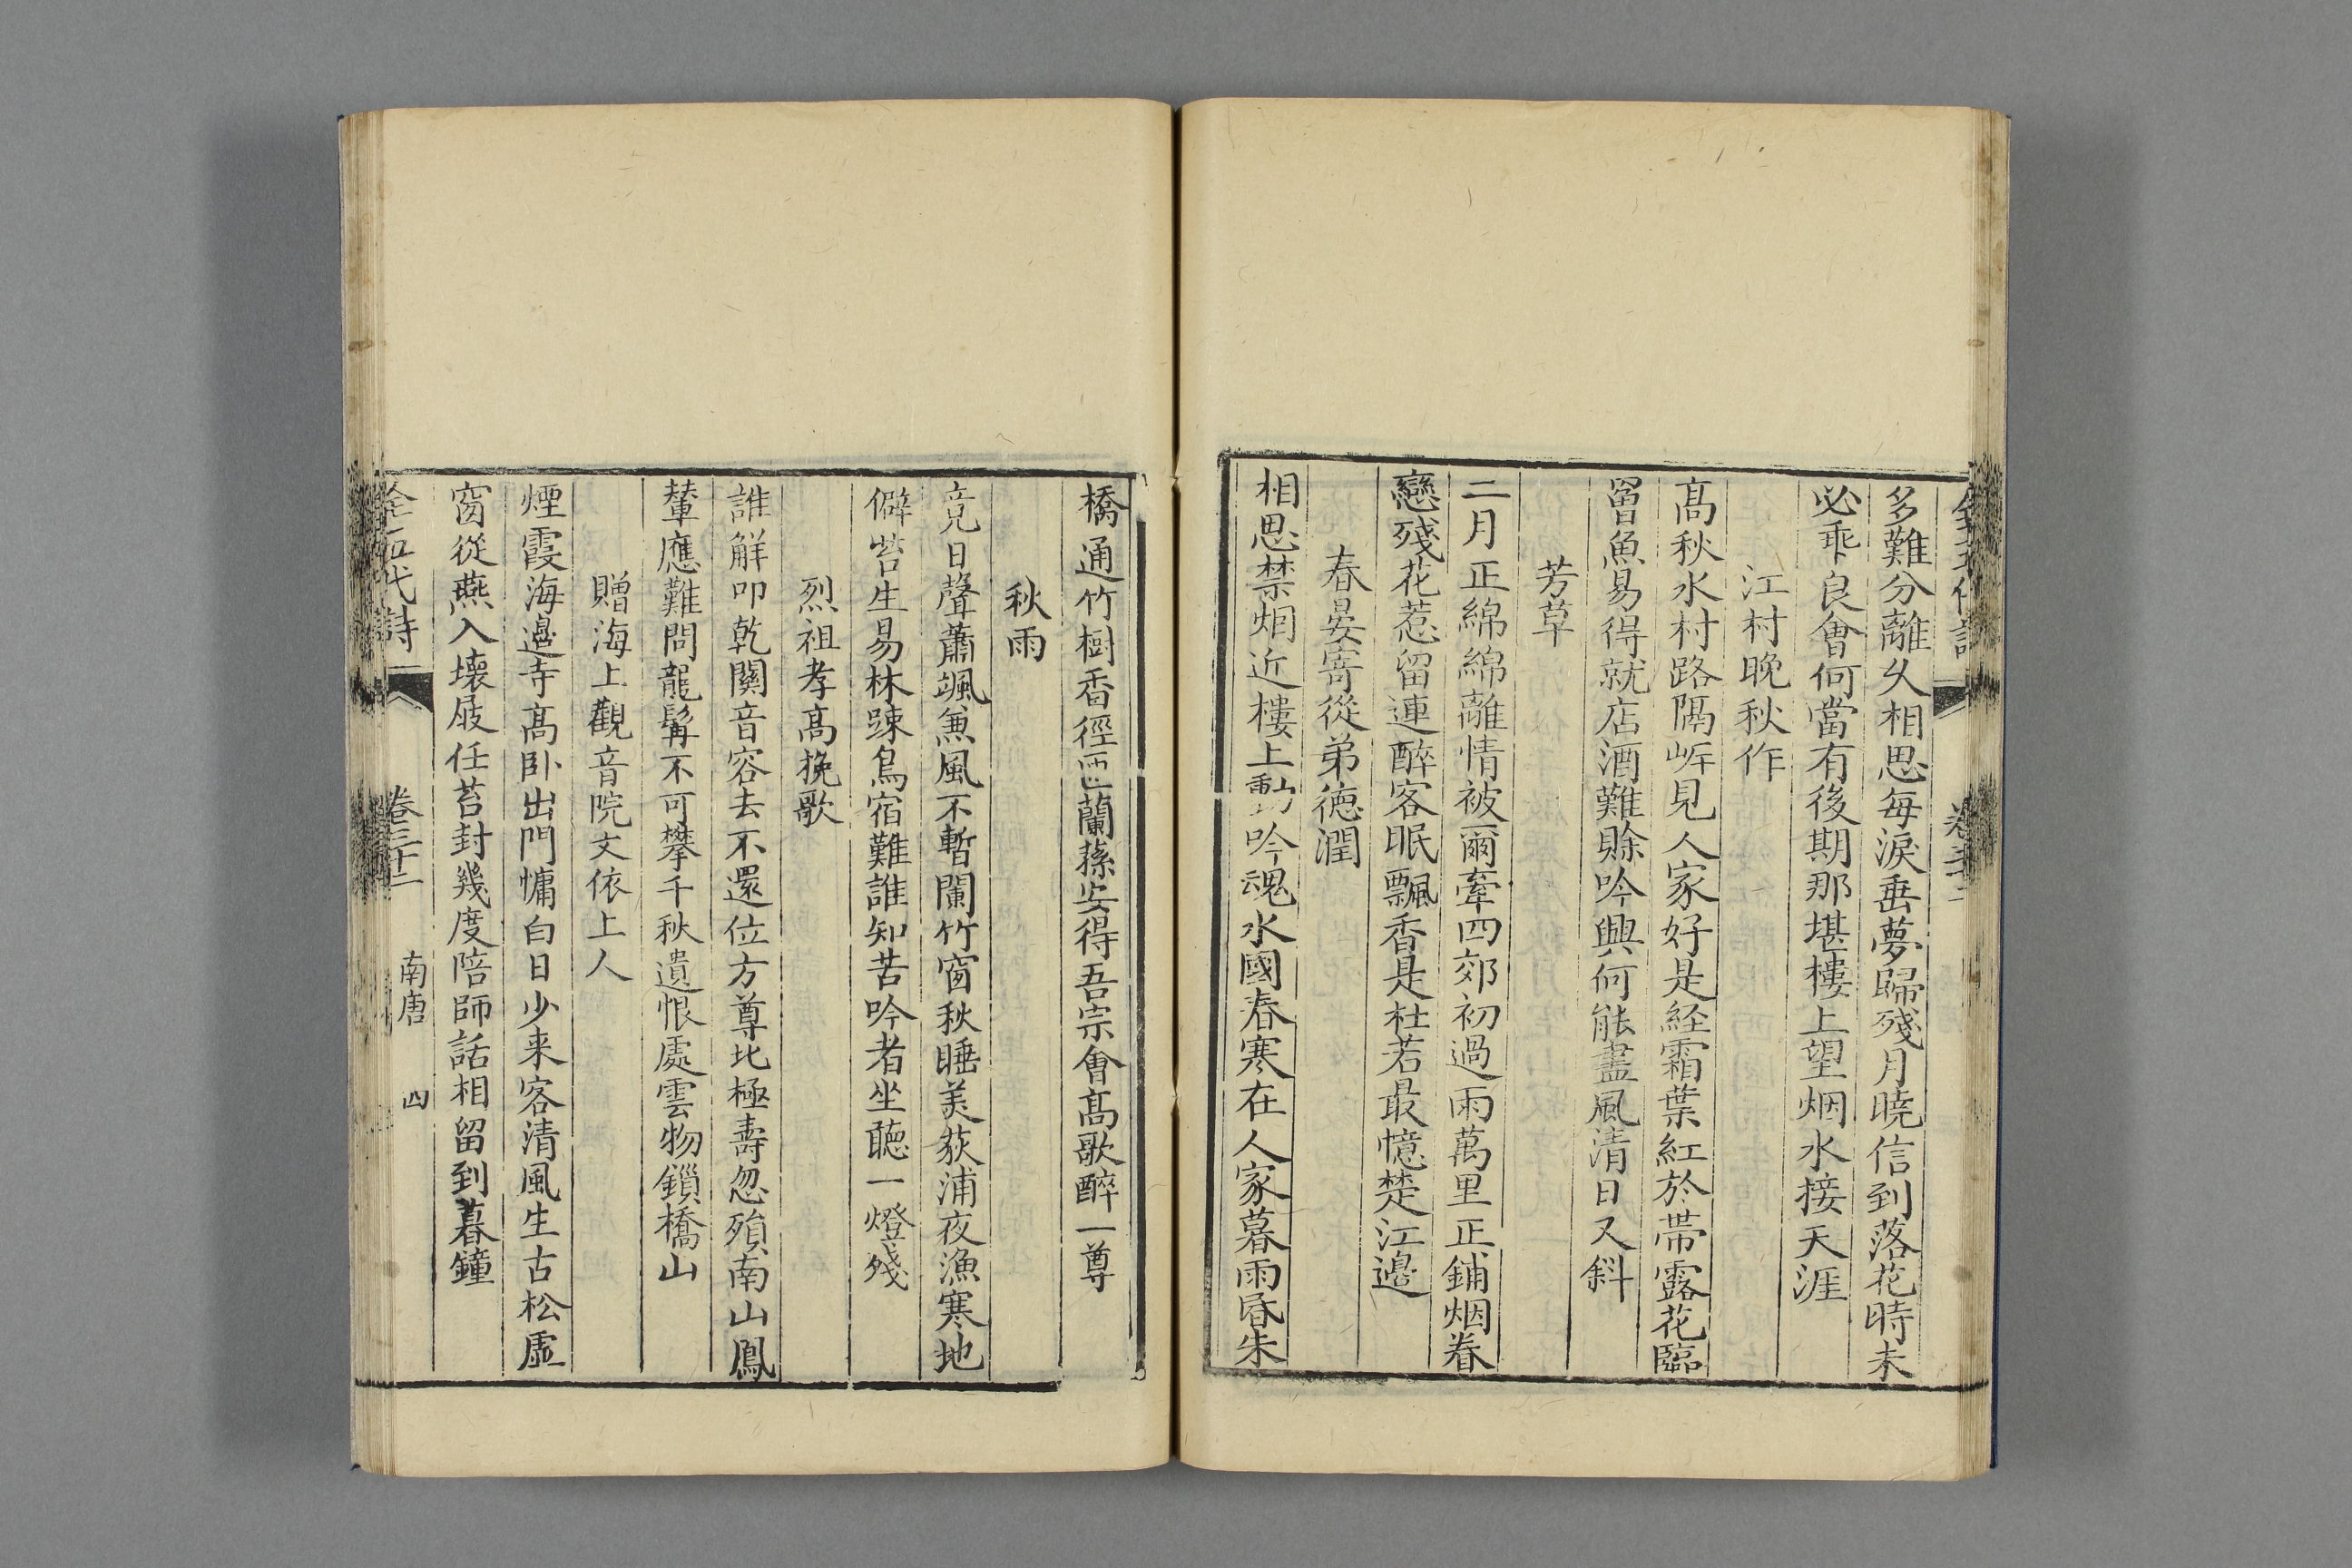 全五代詩 卷三十二
多難分離久相思每淚垂夢歸殘月曉信到落花時未
必乖良會何當有後期那堪樓上望烟水接天涯
江村晚秋作
高秋水村路隔岍見人家好是経霜葉紅於帶露花臨
罾魚易得就店酒難賒吟興何能盡風清日又斜
芳草
二月正綿綿離情被爾牽四郊初過雨萬里正鋪烟眷
戀殘花惹留連醉客眠飄香是杜若最憶楚江邊
春晏寄從弟德潤
相思禁烟近樓上動吟魂水國春寒在人家暮雨昏朱
橋通竹樹香徑匝蘭蓀安得吾宗會高歌醉一尊
秋雨
竞日聲蕭颯兼風不暫闌竹窗秋睡美荻浦夜漁寒地
僻苔生易林踈鳥宿難誰知苦吟者坐聽一燈殘
烈祖孝高挽歌
誰解叩乾關音容去不還位方尊北極壽忽殞南山鳳
輦應難問龍髯不可攀千秋遺恨處雲物鎖橋山
贈海上觀音院文依上人
煙霞海邊寺高卧出門慵白日少来客清風生古松虛
窗從燕入壊屐任苔封幾度陪師話相留到暮鐘
全五代詩 卷三十二 南唐 四